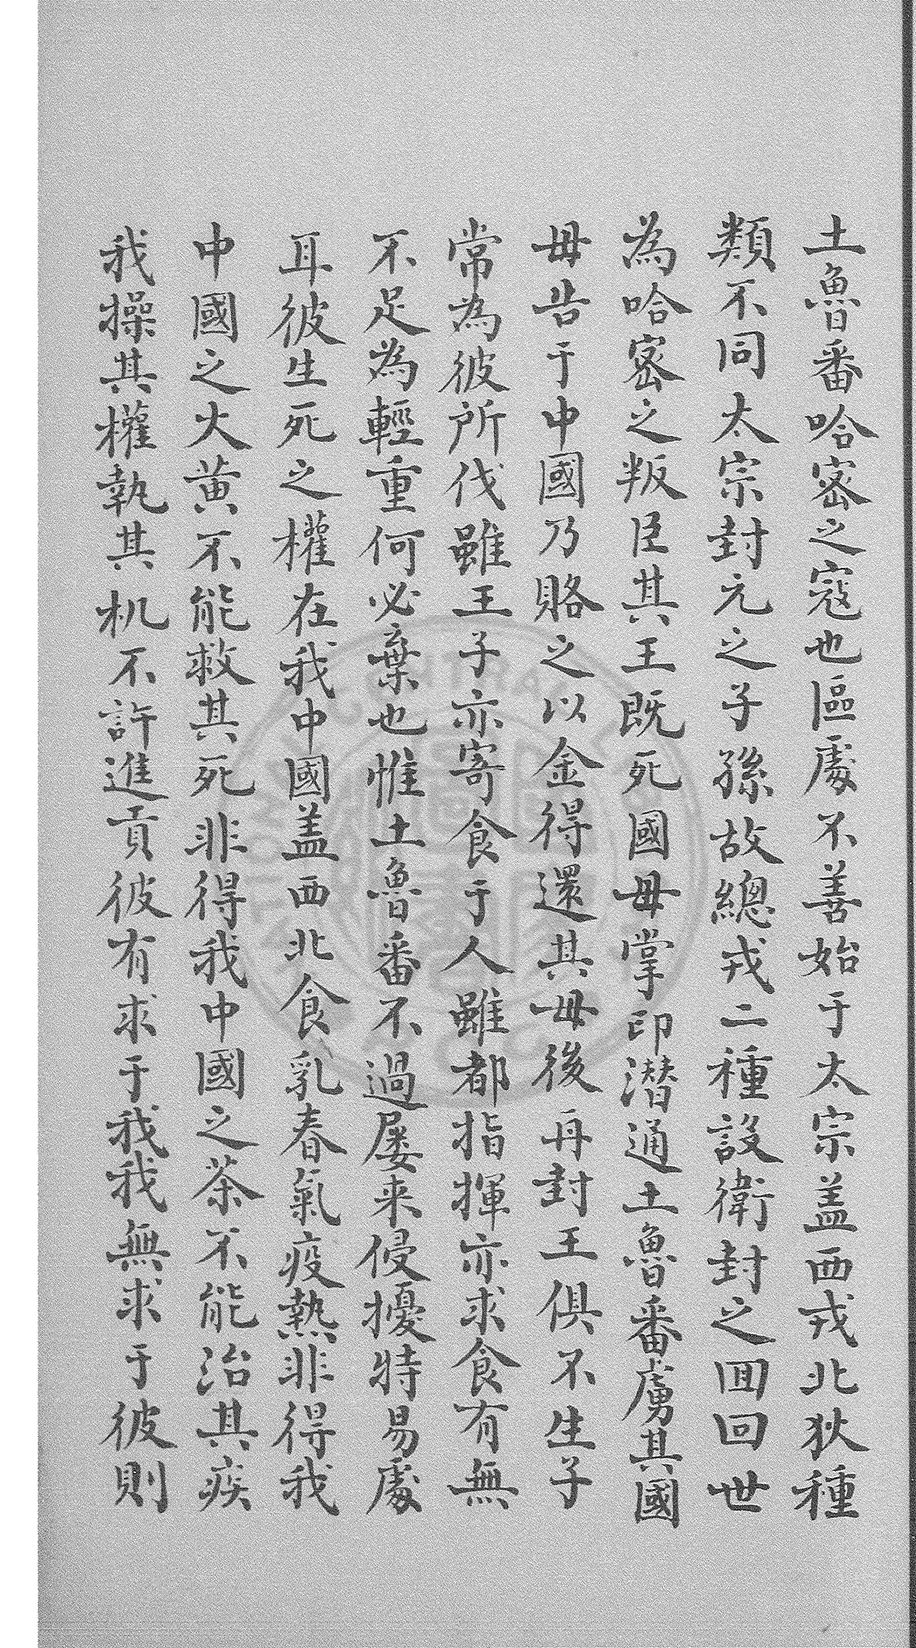 土魯番哈密之寇也區處不善始于太宗盖西戎北狄種
類不同太宗封元之子孫故總戎二種設衛封之囬回世
為哈密之叛臣其王既死國母掌印潜通土魯番虜其國
母告于中國乃賂之以金得還其母後再封王俱不生子
常為彼所伐雖王子亦寄食于人雖都指揮亦求食有無
不足為輕重何必棄也惟土魯番不過屡来侵擾特易處
耳彼生死之權在我中國盖西北食乳春氣疫熱非得我
中國之大黄不能救其死非得我中國之茶不能治其疾
我操其權執其机不許進貢彼有求于我我無求于彼則